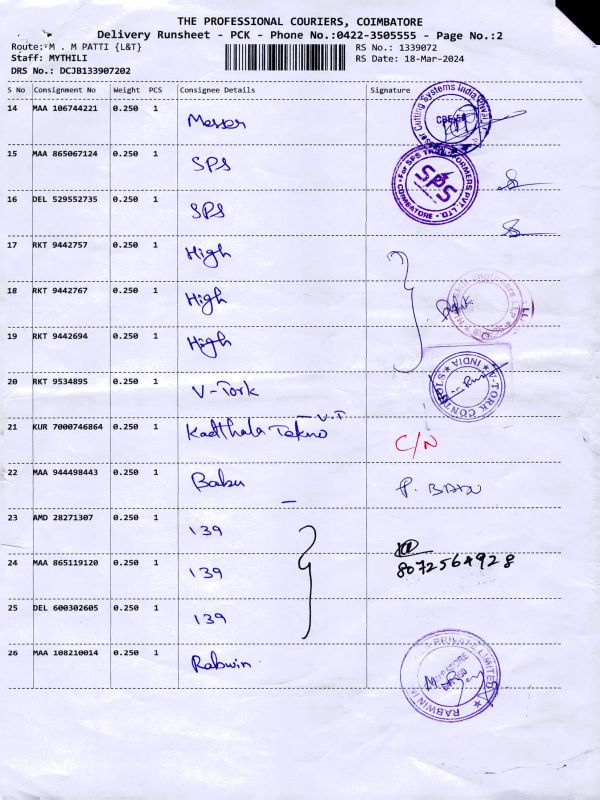 THE PROFESSIONAL COURIERS, COIMBATORE
Delivery Runsheet - PCK - Phone No.:0422-3505555 - Page No.:2
Route: M . M PATTI {L&T} RS No.: 1339072
Staff: MYTHILI RS Date: 18-Mar-2024
DRS No.: DCJB133907202
S No Consignment No Weight PCS Consignee Details Signature
14 MAA 106744221 0.250 1 Messer
Cutting Systems India
15 MAA 865067124 0.250 1 SPS
For SPS TRANSFORMERS PVT. LTD. COIMBATORE SPS
16 DEL 529552735 0.250 1 SPS
17 RKT 9442757 0.250 1 High
18 RKT 9442767 0.250 1 High
19 RKT 9442694 0.250 1 High
20 RKT 9534895 0.250 1 V-Tork
V-TORK CONTROLS INDIA
21 KUR 7000746864 0.250 1 Kadthala Tekno V.T C/N
22 MAA 944498443 0.250 1 Babu P. BABU
23 AMD 28271307 0.250 1 139
24 MAA 865119120 0.250 1 139 8072564928
25 DEL 600302605 0.250 1 139
26 MAA 108210014 0.250 1 Rabwin
RABWIN PRIVATE LIMITED